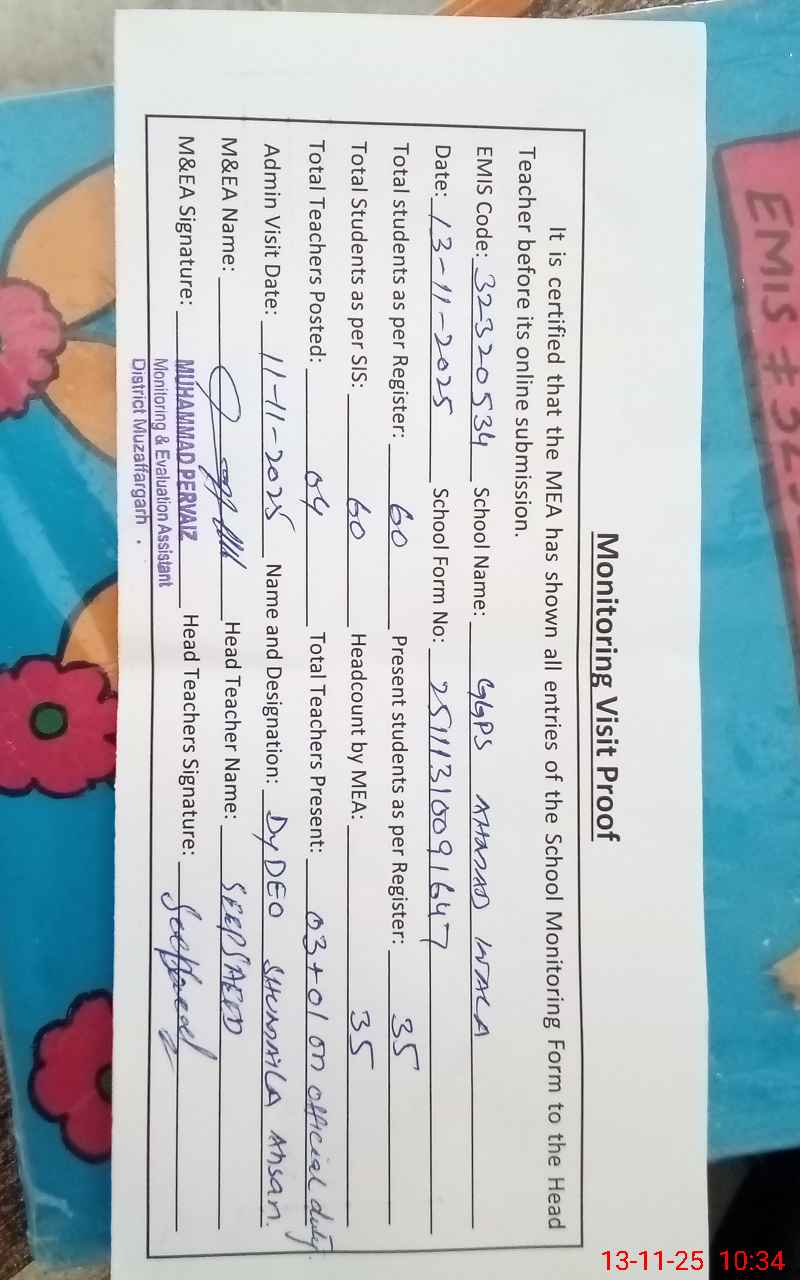 Monitoring Visit Proof
It is certified that the MEA has shown all entries of the School Monitoring Form to the Head
Teacher before its online submission.
EMIS Code: 32320534 School Name: GGPS WALA
Date: 13-11-2025 School Form No: 25111310091647
Total students as per Register: 60 Present students as per Register: 35
Total Students as per SIS: 60 Headcount by MEA: 35
Total Teachers Posted: 04 Total Teachers Present: 03+01 on official duty.
Admin Visit Date: 11-11-2025 Name and Designation: Dy DEO SHUMAILA Ahsan.
M&EA Name: Head Teacher Name: SEEP SAEED
M&EA Signature: MUHAMMAD PERVAIZ Head Teachers Signature:
Monitoring & Evaluation Assistant
District Muzaffargarh.
EMIS # 323
13-11-25 10:34